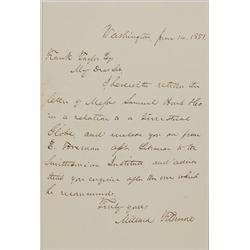 Washington June 14. 1851.
Frank Taylor Esq
My Dear Sir
I herewith return the
letter of Samuel
in relation to a Terrestrial
Globe, and enclose you one from
E. Foreman
Smithsonian Institute and
that you enquire after the one which
he recommends.
Truly yours
Millard Fillmore